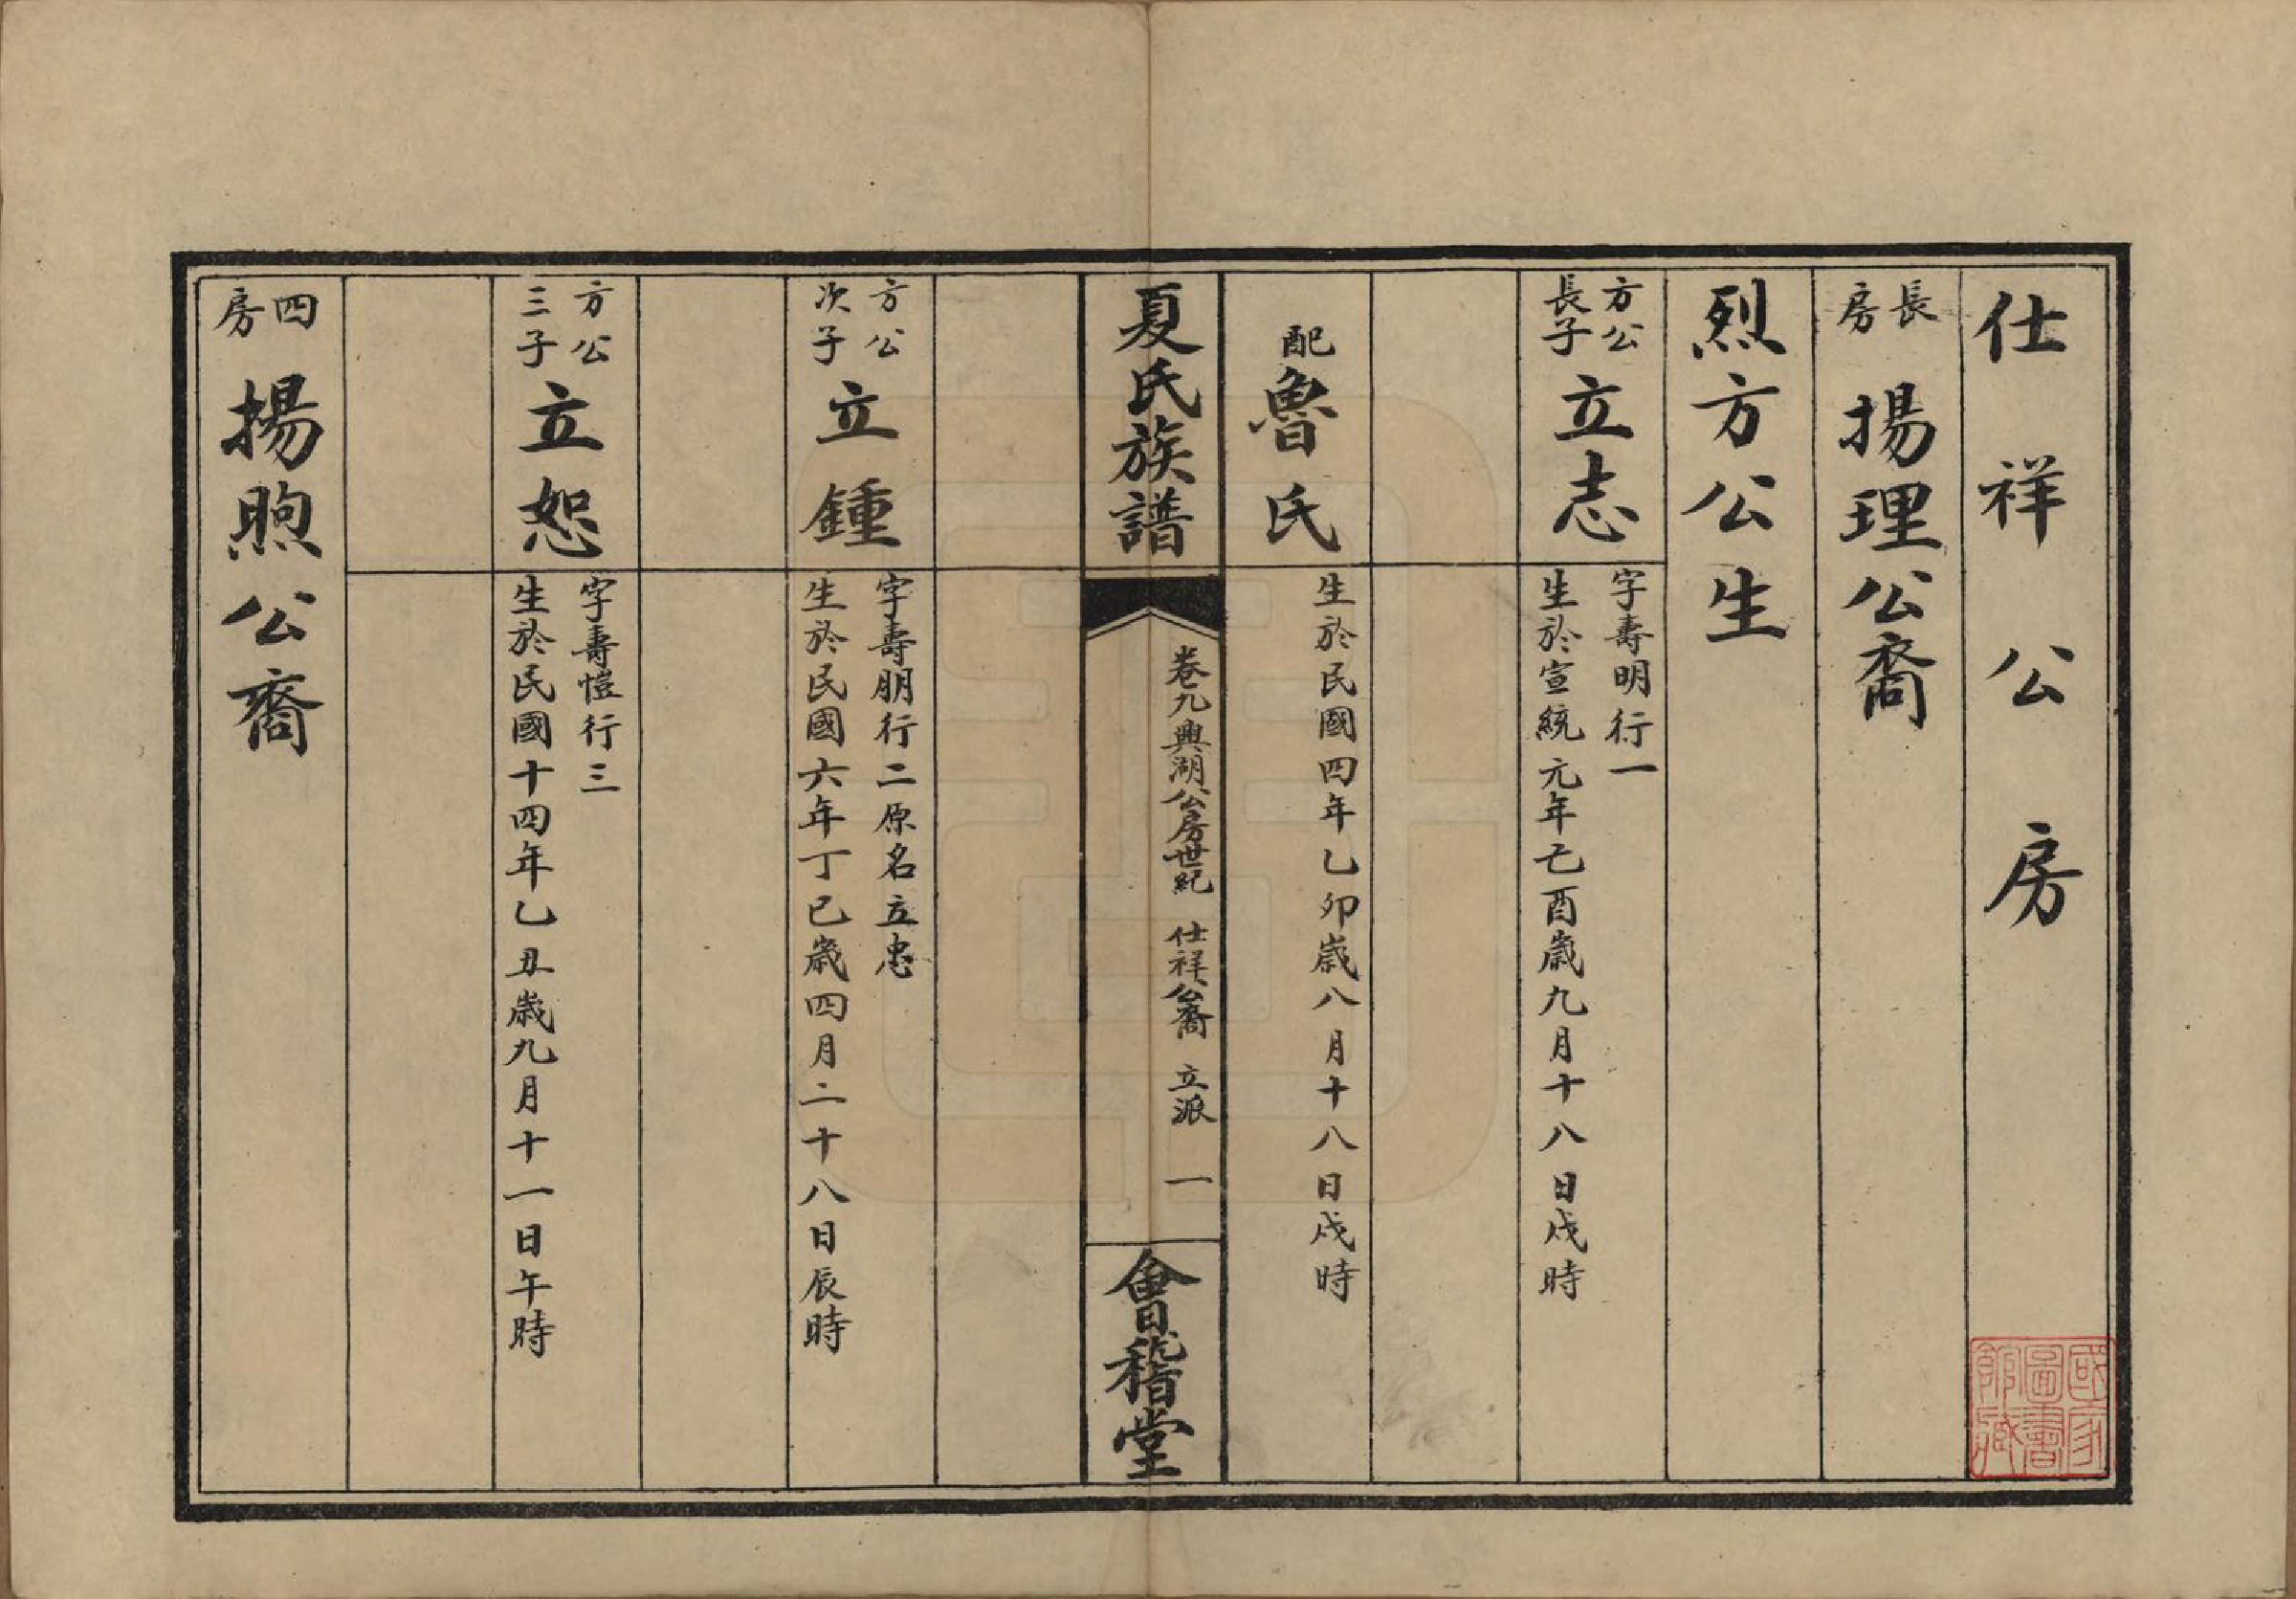 仕祥公房
長房
揚理公裔
烈方公生
方公長子
立志
字壽明行一
生於宣統元年己酉歲九月十八日戌時
配魯氏
生於民國四年乙卯歲八月十八日戌時
夏氏族譜
卷九興湖公房世紀 仕祥公裔 立派 一
會稽堂
方公次子
立鍾
字壽朋行二原名立忠
生於民國六年丁巳歲四月二十八日辰時
方公三子
立恕
字壽愷行三
生於民國十四年乙丑歲九月十一日午時
四房
揚煦公裔
國家圖書館藏